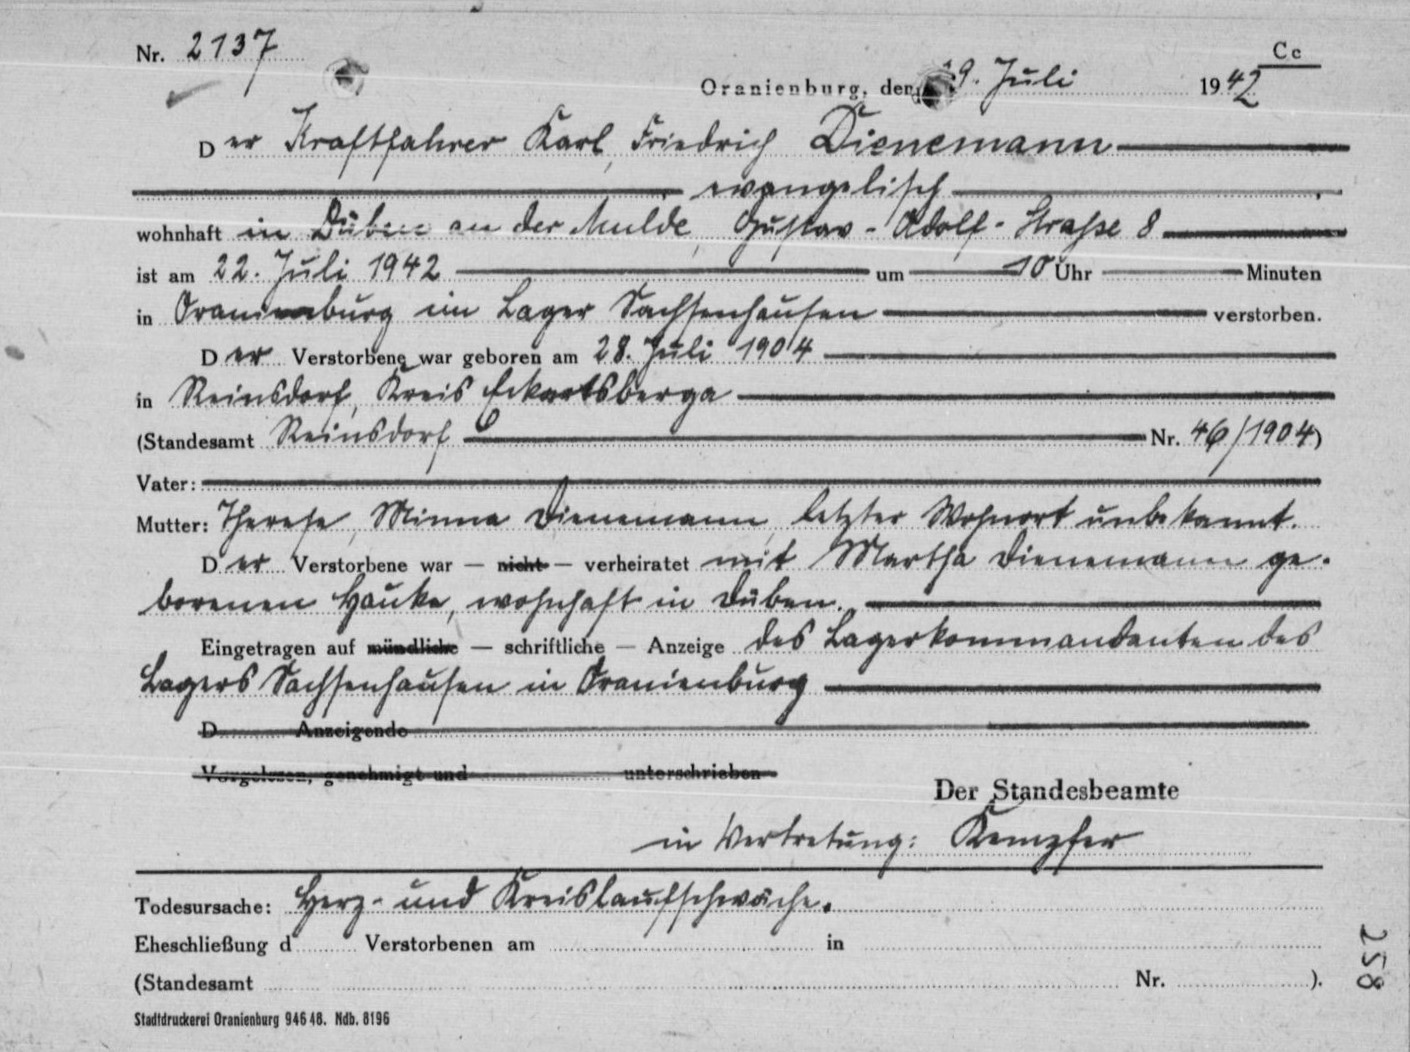 Nr. 2137
Cc
Oranienburg, den 29. Juli 1942
Der Kraftfahrer Karl, Friedrich Dienemann
evangelisch
wohnhaft in Düben an der Mulde, Gustav-Adolf-Straße 8
ist am 22. Juli 1942 um 10 Uhr Minuten
in Oranienburg im Lager Sachsenhausen verstorben.
Der Verstorbene war geboren am 28. Juli 1904
in Reinsdorf, Kreis Eckartsberga
(Standesamt Reinsdorf Nr. 46/1904)
Vater:
Mutter: Therese, Minna Dienemann, letzter Wohnort unbekannt.
Der Verstorbene war — nicht — verheiratet mit Martha Dienemann ge-
borenen Hauke, wohnhaft in Düben.
Eingetragen auf mündliche — schriftliche — Anzeige des Lagerkommandanten des
Lagers Sachsenhausen in Oranienburg
D Anzeigende
Vorgelesen, genehmigt und unterschrieben
Der Standesbeamte
in Vertretung: Kempfer
Todesursache: Herz- und Kreislaufschwäche.
Eheschließung d Verstorbenen am in
(Standesamt Nr. ).
Stadtdruckerei Oranienburg 946 48. Ndb. 8196
258